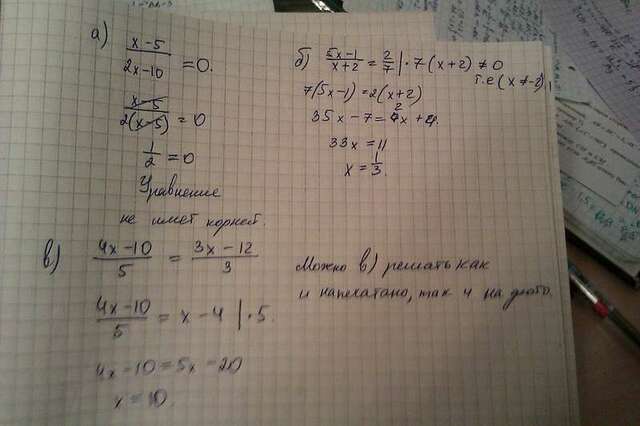 а) (x-5)/(2x-10) = 0.
(x-5)/(2(x-5)) = 0
1/2 = 0
Уравнение
не имет корней.
б) (5x-1)/(x+2) = 2/7 | · 7(x+2) ≠ 0
т.е (x ≠ -2)
7(5x-1) = 2(x+2)
35x - 7 = 2x + 4.
33x = 11
x = 1/3.
в) (4x-10)/5 = (3x-12)/3
(4x-10)/5 = x - 4 | · 5.
4x - 10 = 5x - 20
x = 10.
Можно в) решать как
и напечатано, так и на фото.